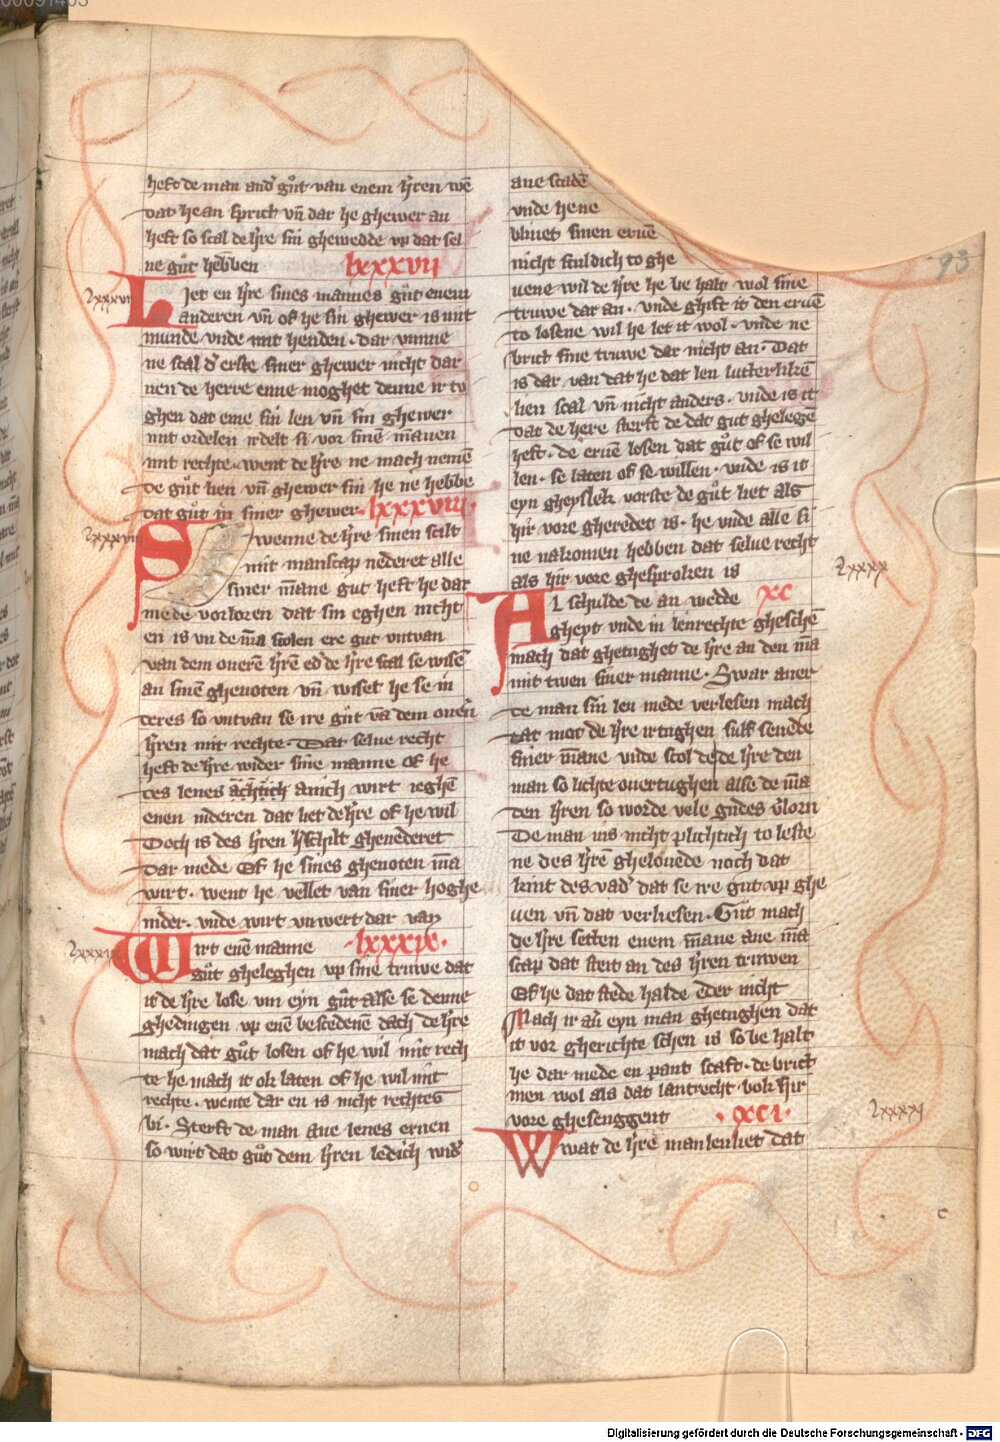 heft de man and͛ gůt van enem h̅ren we̅
dat he an sprict vn̅ dar he ghewer an
heft so scal de h̅re sin ghewedde vp dat sel
ne gůt hebben lxxxvii
Let en h̅re sines mannes gůt enem
anderen vn̅ of he sin ghewer is mit
munde vnde mit henden · dar vmme
ne scal d͛ erste siner ghewer nicht dar
nen de herre enne moghet denne ir tv
ghen dat eme sin len vn̅ sin ghewer
mit ordelen irdelt si vor sine̅ mannen
mit rechte · went de h̅re ne mach neme̅
de gůt lien vn̅ ghewer sin he ne hebbe
dat gůt in siner ghewer · lxxxviii ·
Swenne de h̅re sinen scilt
mit manscap nederet alle
siner m̅ane gut heft he dar
mede vorloren dat sin eghen nicht
en is vn de ma̅ scolen ere gut vntvan
van dem ouere̅ h̅re̅ ed͛ de h̅re scal se wise̅
an sine̅ ghenoten vn̅ wiset he se in
deres so vntvan se ire gůt va̅ dem ouern̅
h̅ren mit rechte · Dat selue recht
heft de h̅re wider sine manne of he
des lenes anich wirt ieghe̅
enen nideren dat liet de h̅re of he wil
Doch is des h̅ren schilt ghenederet
dar mede Of he sines ghenoten ma̅
wirt · went he vellet van siner hoghe
nider · vnde wirt vnwert dar van
Wirt ene̅ manne · lxxxix ·
gůt gheleghen vp sine truwe dat
it de h̅re lose vm eyn gůt alse se denne
ghedingen vp ene̅ bescedene̅ dach de h̅re
mach dat gůt losen of he wil mit rech
te he mach it ok laten of he wil mit
rechte · wente dar en is nicht rechtes
bi · Sterft de man ane lenes eruen
so wirt dat gůt dem h̅ren ledich wid͛
ane scade̅
vnde he ne
bliuet sinen erue̅
nicht sculdich to ghe
uene wil de h̅re he be halt wol sine
truwe dar an · vnde ghift it den erue̅
to losene wil he let it wol · vnde ne
brict sine truwe dar nicht an · Dat
is dar van dat he dat len lutterlike̅
lien scal vn̅ nicht anders · vnde is it
dat de here sterft de dat gut ghelege̅
heft · de erue̅ losen dat gůt of se wil
len · se laten of se willen · vnde is it
eyn gheyslek vorste de gůt liet als
hir vore gheredet is · he vnde alle si
ne nakomen hebben dat selue recht
als hir vore ghesproken is
Al schulde de an wedde xc
gheyt vnde in lenrechte ghesche̅
mach dat ghetughet de h̅re an den ma̅
mit twen siner manne · Swar auer
de man sin len mede verlesen mach
dat mot de h̅re irtughen sulf seuede
siner m̅ane vnde scol de de h̅re den
man so lichte ouertughen alse de ma̅
den h̅ren so worde vele gudes v͛lorn
De man nis nicht plichtich to leste
ne des h̅re̅ ghelouede noch dat
kint des vad͛ dat se ire gut vp ghe
uen vn̅ dat verliesen · Gůt mach
de h̅re setten enem m̅ane ane ma̅
scap dat steit an des h̅ren truwen
Of he dat stede halde eder nicht
Mach ir au͛ eyn man ghetughen dat
it vor gherichte schen is so be halt
he dar mede en pant scaft · de brict
men wol als dat lantrecht · vok hir
vore ghesenggent · xci ·
Wwat de h̅re man len liet dat
93
Lxxxx
Lxxxxj
c
Digitalisierung gefördert durch die Deutsche Forschungsgemeinschaft - DFG